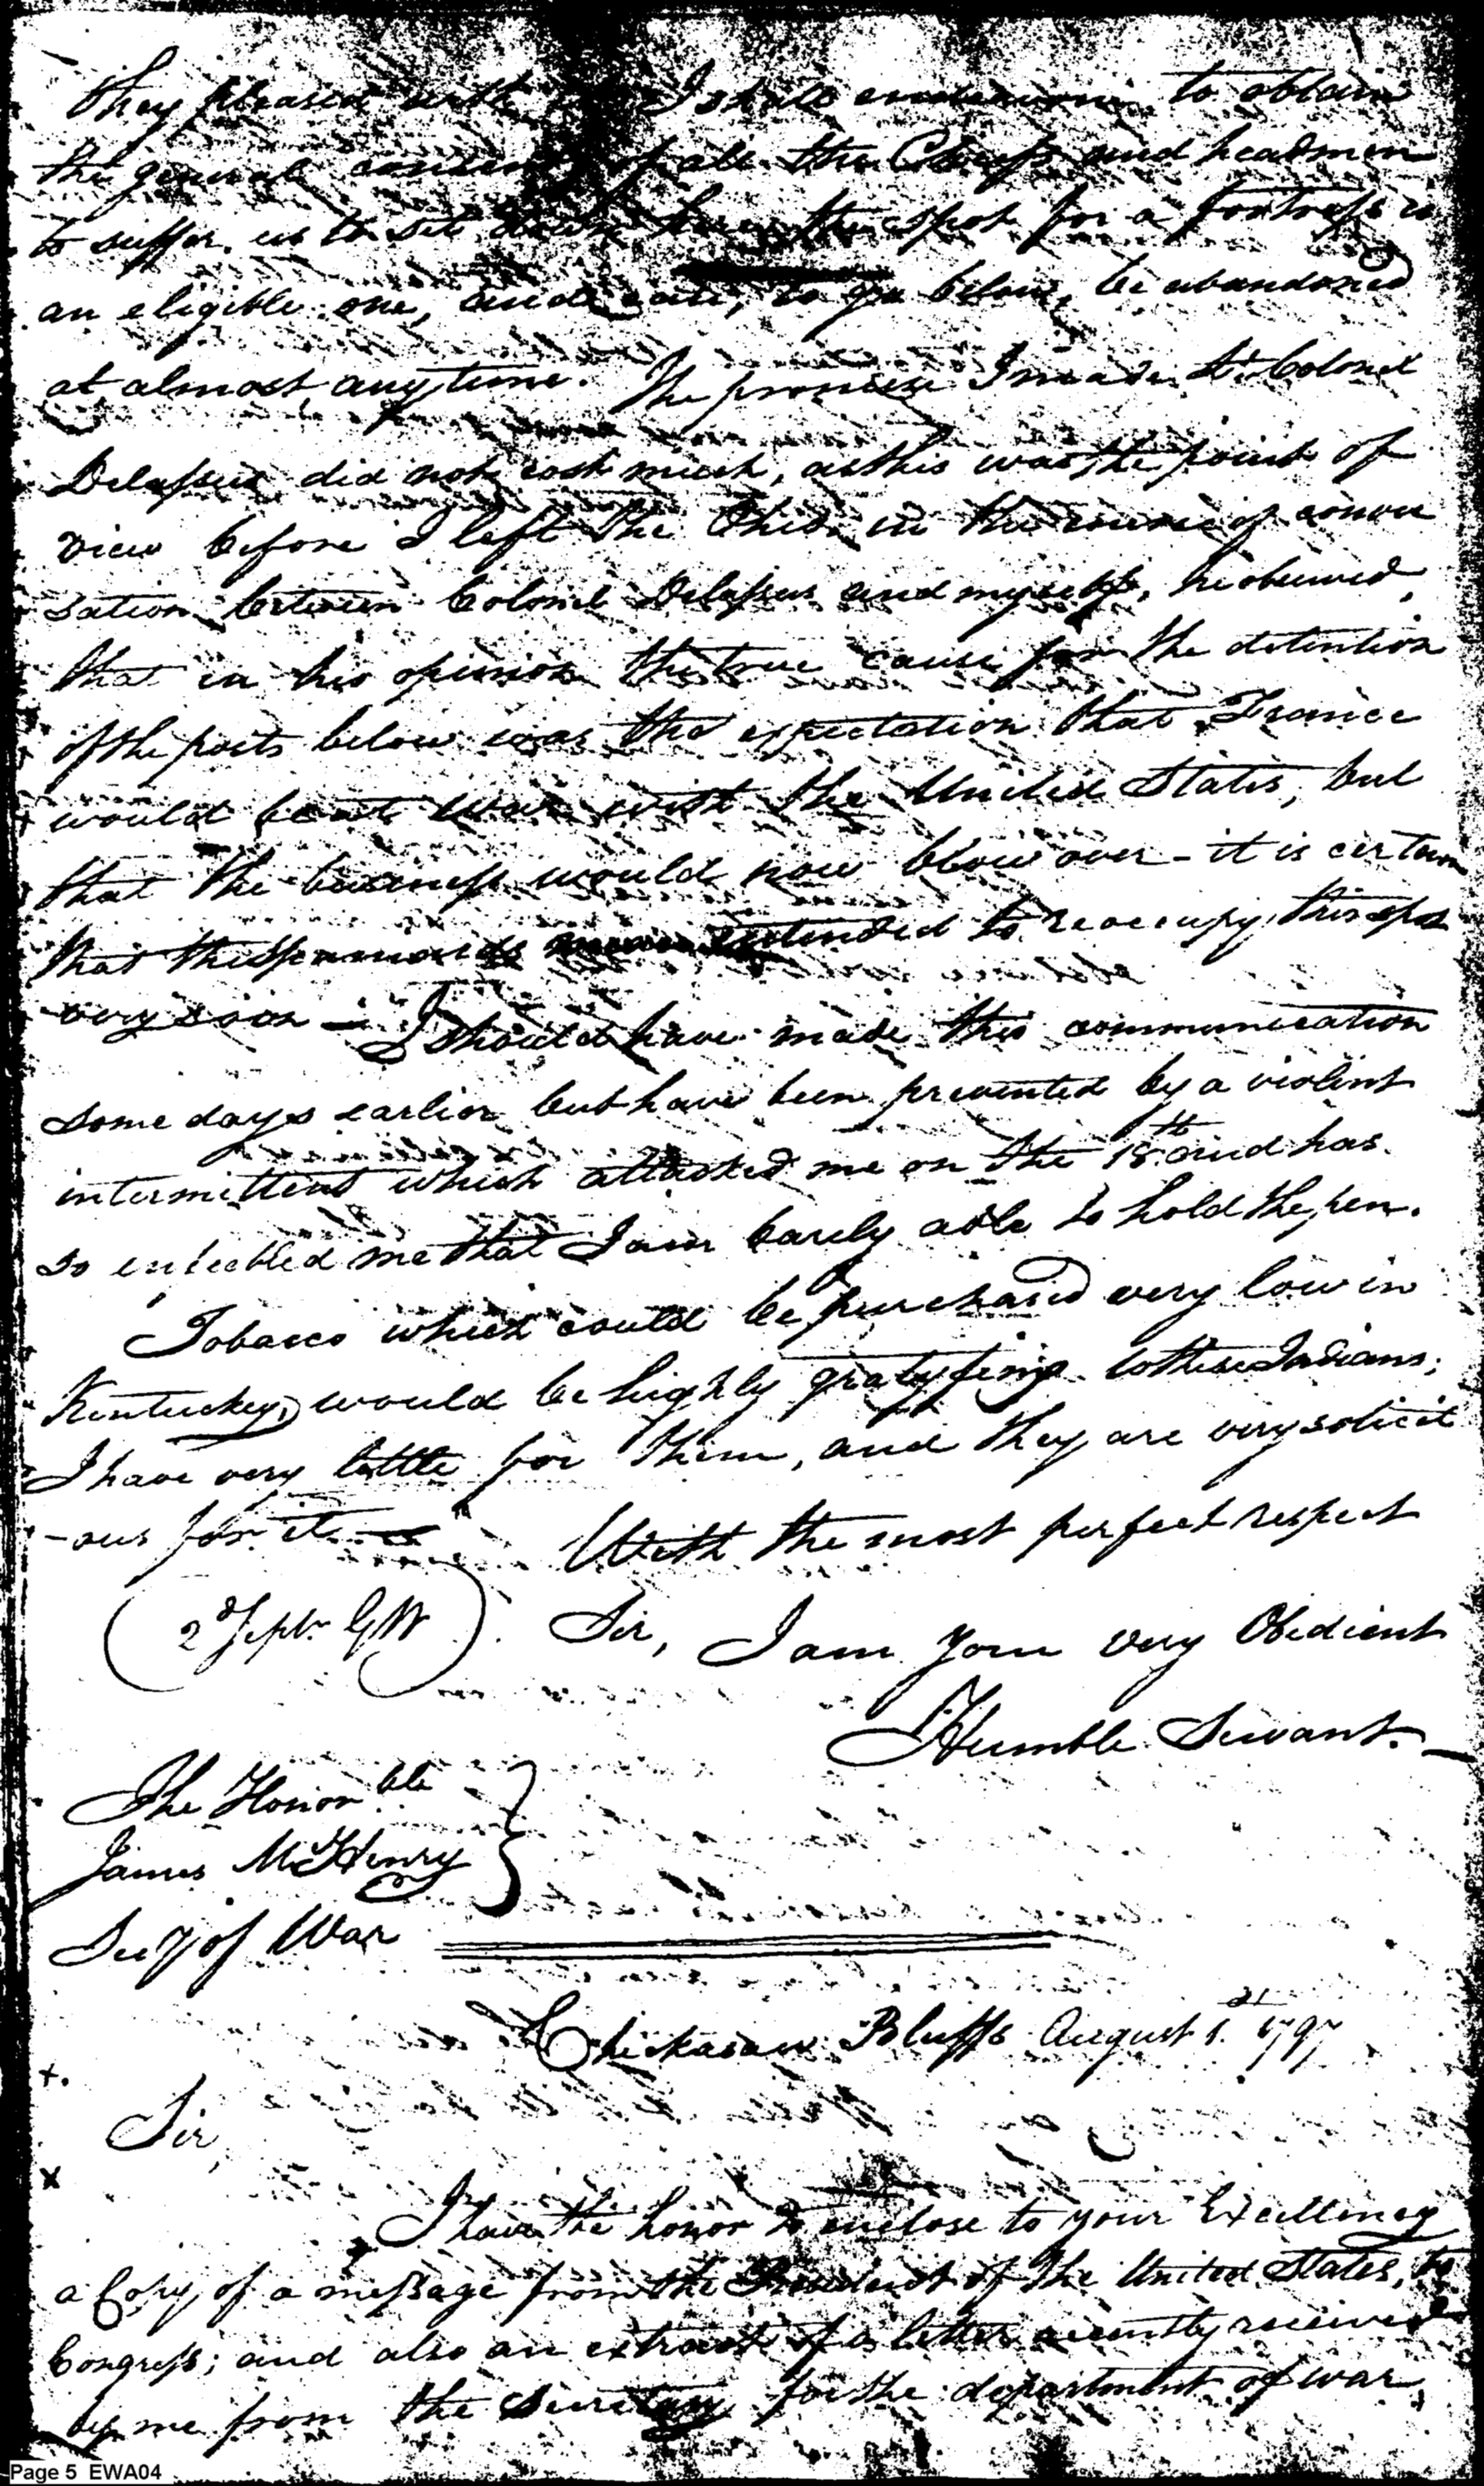 they pleased with I shall endeavour to obtain
the general consent of all the Chiefs and headmen
to suffer us to sit down here the spot for a fortress is
an eligible one, and can, to go below, be abandoned
at almost any time. The promise I made Lt Colonel
Delassus did not cost much, as this was the point of
view before I left the Ohio in the course of conver
sation between Colonel Delassus and myself, he observed,
that in his opinion the true cause for the detention
of the posts below was the expectation that France
would be at war with the United States, but
that the business would now blow over - it is certain
that the Spaniards intended to reoccupy this spot
very soon - I should have made this communication
some days earlier but have been prevented by a violent
intermittent which attacked me on the 18th and has
so enfeebled me that I am barely able to hold the pen.
Tobacco which could be purchased very low in
Kentucky, would be highly gratyfing to these Indians;
I have very little for them, and they are very solicit
-ous for it - With the most perfect respect
(2d Septr GW) Sir, I am your very Obedient
Humble Servant. -
The Honorble
James McHenry
Secy of War
Chickasaw Bluffs August 1. 1797
21
+.
Sir,
x
I have the honor to enclose to your Excellency
a Copy of a message from the President of the United States, to
Congress; and also an extract of a letter recently received
by me from the Secretary for the department of war,
Page 5 EWA04